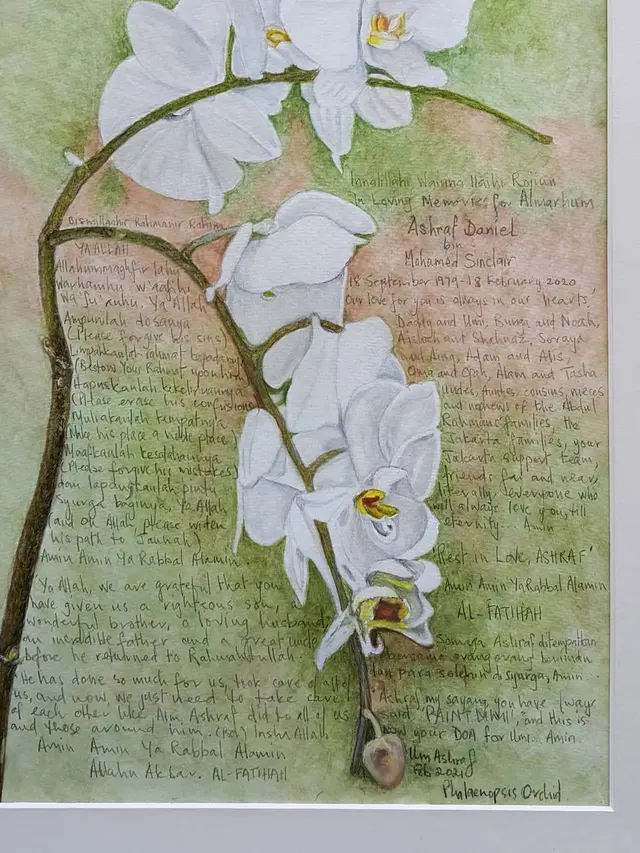 Bismillahir Rahmanir Rahim
YA ALLAH
Allahummaghfir lahu
Warhamhu w'aafihi
Wa'fu'anhu, Ya Allah
Ampunilah dosanya
(Please forgive his sins)
Limpahkanlah rahmat kepadanya
(Bestow Your Rahmat upon him)
Hapuskanlah kekeliruannya
(Please erase his confusions)
Muliakanlah tempatnya
(Make his place a noble place)
Maafkanlah kesalahannya
(Please forgive his mistakes)
dan lapangkanlah pintu
Syurga baginya, Ya Allah
(and Oh Allah, please widen
his path to Jannah)
Amin Amin Ya Rabbal Alamin.
'Ya Allah, we are grateful that you
have given us a righteous son, a
wonderful brother, a loving husband,
an incredible father and a great uncle
before he returned to Rahmatullah.
He has done so much for us, took care of all of
us, and now we just need to take care
of each other like Him Ashraf did to all of us
and those around him. InshaAllah
Amin Amin Ya Rabbal Alamin
Allahu Akbar. AL-FATIHAH
Innalillahi Wainna Ilaihi Rojiun
In Loving Memories for Almarhum
Ashraf Daniel
bin
Mohamed Sinclair
18 September 1979 - 18 February 2020
'Our love for you is always in our hearts,'
Daddy and Umi, Bunga and Noah,
Aishah and Shahnaz, Soraya
and Adam and Alis,
Oma and Opah, Alam and Tasha
Uncles, Aunties, cousins, nieces
and nephews of the Abdul
Rahmane families, the
Jakarta families, your
Jakarta support team,
friends far and near,
literally, everyone who
will always love you, till
eternity. Amin
'Rest in Love, ASHRAF'
Amin Amin Ya Rabbal Alamin
AL-FATIHAH
Semoga Ashraf ditempatkan
bersama orang orang beriman
dan para solehin di syurga, Amin
'Ashraf my sayang, you have always
said 'PAINT UMMI', and this is
now your DOA for Umi... Amin.
Umi Ashraf
Feb 2021
Phalaenopsis Orchid